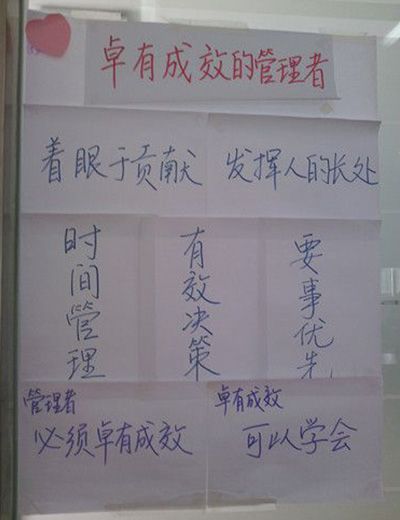 卓有成效的管理者
着眼于贡献
发挥人的长处
时间管理
有效决策
要事优先
管理者
必须卓有成效
卓有成效
可以学会